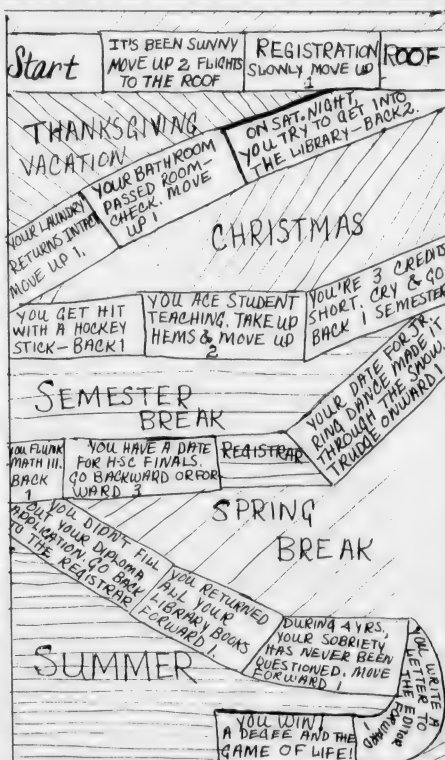 Start
IT'S BEEN SUNNY
MOVE UP 2 FLIGHTS
TO THE ROOF
REGISTRATION
SLONLY MOVE UP
1
ROOF
THANKSGIVING
VACATION
ON SAT. NIGHT
YOU TRY TO GET INTO
THE LIBRARY—BACK 2.
YOUR BATHROOM
PASSED ROOM-
CHECK. MOVE
UP 1
YOUR LAUNDRY
RETURNS INTACT
MOVE UP 1.
CHRISTMAS
YOU GET HIT
WITH A HOCKEY
STICK—BACK 1
YOU ACE STUDENT
TEACHING. TAKE UP
HEMS & MOVE UP
2
YOU'RE 3 CREDITS
SHORT. CRY & GO
BACK 1 SEMESTER
SEMESTER
BREAK
YOUR DATE FOR JR.
RING DANCE MADE it
THROUGH THE SNOW.
TRUDGE ONWARD 1
REGISTRAR
YOU HAVE A DATE
FOR H-SC FINALS.
GO BACKWARD OR FOR
WARD 3
YOU FLUNK
MATH III.
BACK
1
SPRING
BREAK
YOU DIDN'T FILL
OUT YOUR DIPLOMA
APPLICATION GO BACK
TO THE REGISTRAR
YOU RETURNED
ALL YOUR
LIBRARY BOOKS
FORWARD 1.
DURING 4 YRS,
YOUR SOBRIETY
HAS NEVER BEEN
QUESTIONED. MOVE
FORWARD 1
YOU WRITE A
LETTER TO
THE EDITOR
FORWARD
1
SUMMER
YOU WIN!
A DEGEE AND THE
GAME OF LIFE!